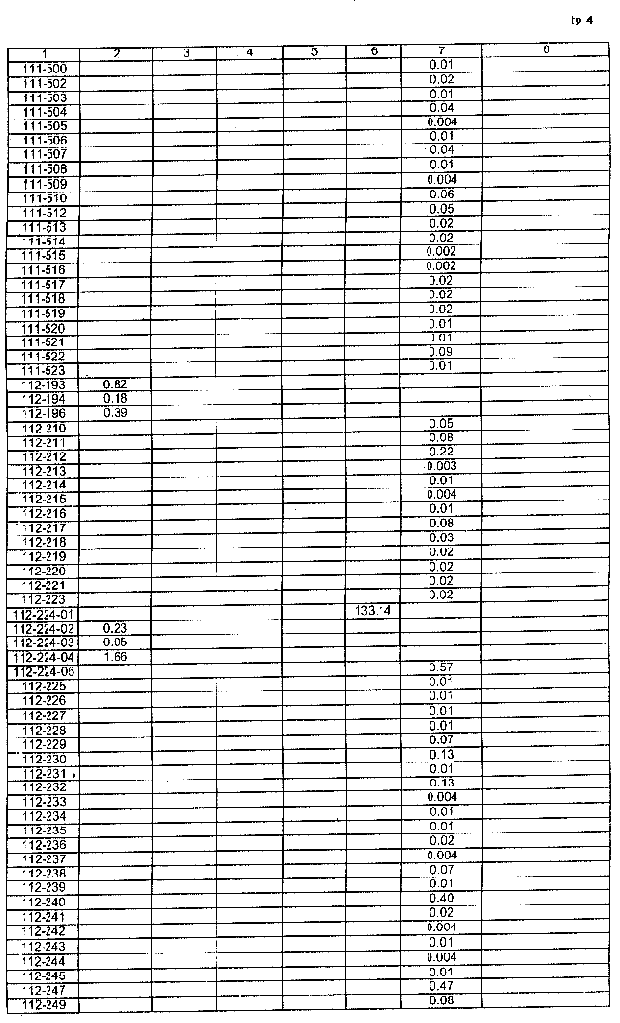 tp 4
1 2 3 4 5 6 7 8
111-500 0.01
111-502 0.02
111-503 0.01
111-504 0.04
111-505 0.004
111-506 0.01
111-507 0.04
111-508 0.01
111-509 0.004
111-510 0.06
111-512 0.05
111-513 0.02
111-514 0.02
111-515 0.002
111-516 0.002
111-517 0.02
111-518 0.02
111-519 0.02
111-520 0.01
111-521 0.01
111-522 0.09
111-523 0.01
112-193 0.82
112-194 0.18
112-196 0.39
112-210 0.05
112-211 0.08
112-212 0.22
112-213 0.003
112-214 0.01
112-215 0.004
112-216 0.01
112-217 0.08
112-218 0.03
112-219 0.02
112-220 0.02
112-221 0.02
112-223 0.02
112-224-01 133.14
112-224-02 0.23
112-224-03 0.05
112-224-04 1.66
112-224-05 0.57
112-225 0.01
112-226 0.01
112-227 0.01
112-228 0.01
112-229 0.07
112-230 0.13
112-231 0.01
112-232 0.13
112-233 0.004
112-234 0.01
112-235 0.01
112-236 0.02
112-237 0.004
112-238 0.07
112-239 0.01
112-240 0.40
112-241 0.02
112-242 0.004
112-243 0.01
112-244 0.004
112-245 0.01
112-247 0.47
112-249 0.08